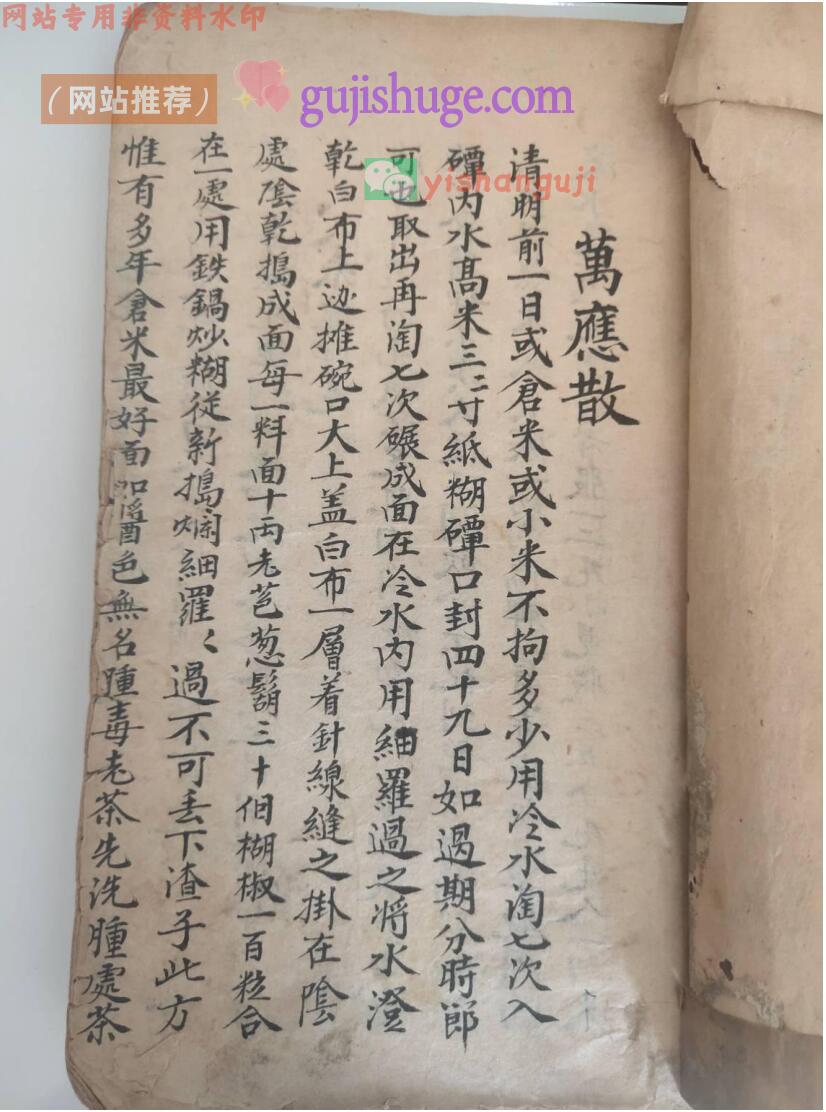 网站专用非资料水印
（网站推荐）
gujishuge.com
yishanguji
萬應散
清明前一日或倉米或小米不拘多少用冷水淘七次入
磹内水髙米三二寸紙糊磹口封四十九日如過期分時郎
可也取出再淘七次碾成面在冷水内用細羅過之将水澄
乾白布上边摊碗口大上盖白布一層着針線縫之掛在陰
處陰乾搗成面每一料面十両老芭葱鬍三十佪楜椒一百粒合
在一處用鉄鍋炒糊從新搗爛細羅々過不可丢下渣子此方
惟有多年倉米最好面如醬色無名腫毒老茶先洗腫處茶